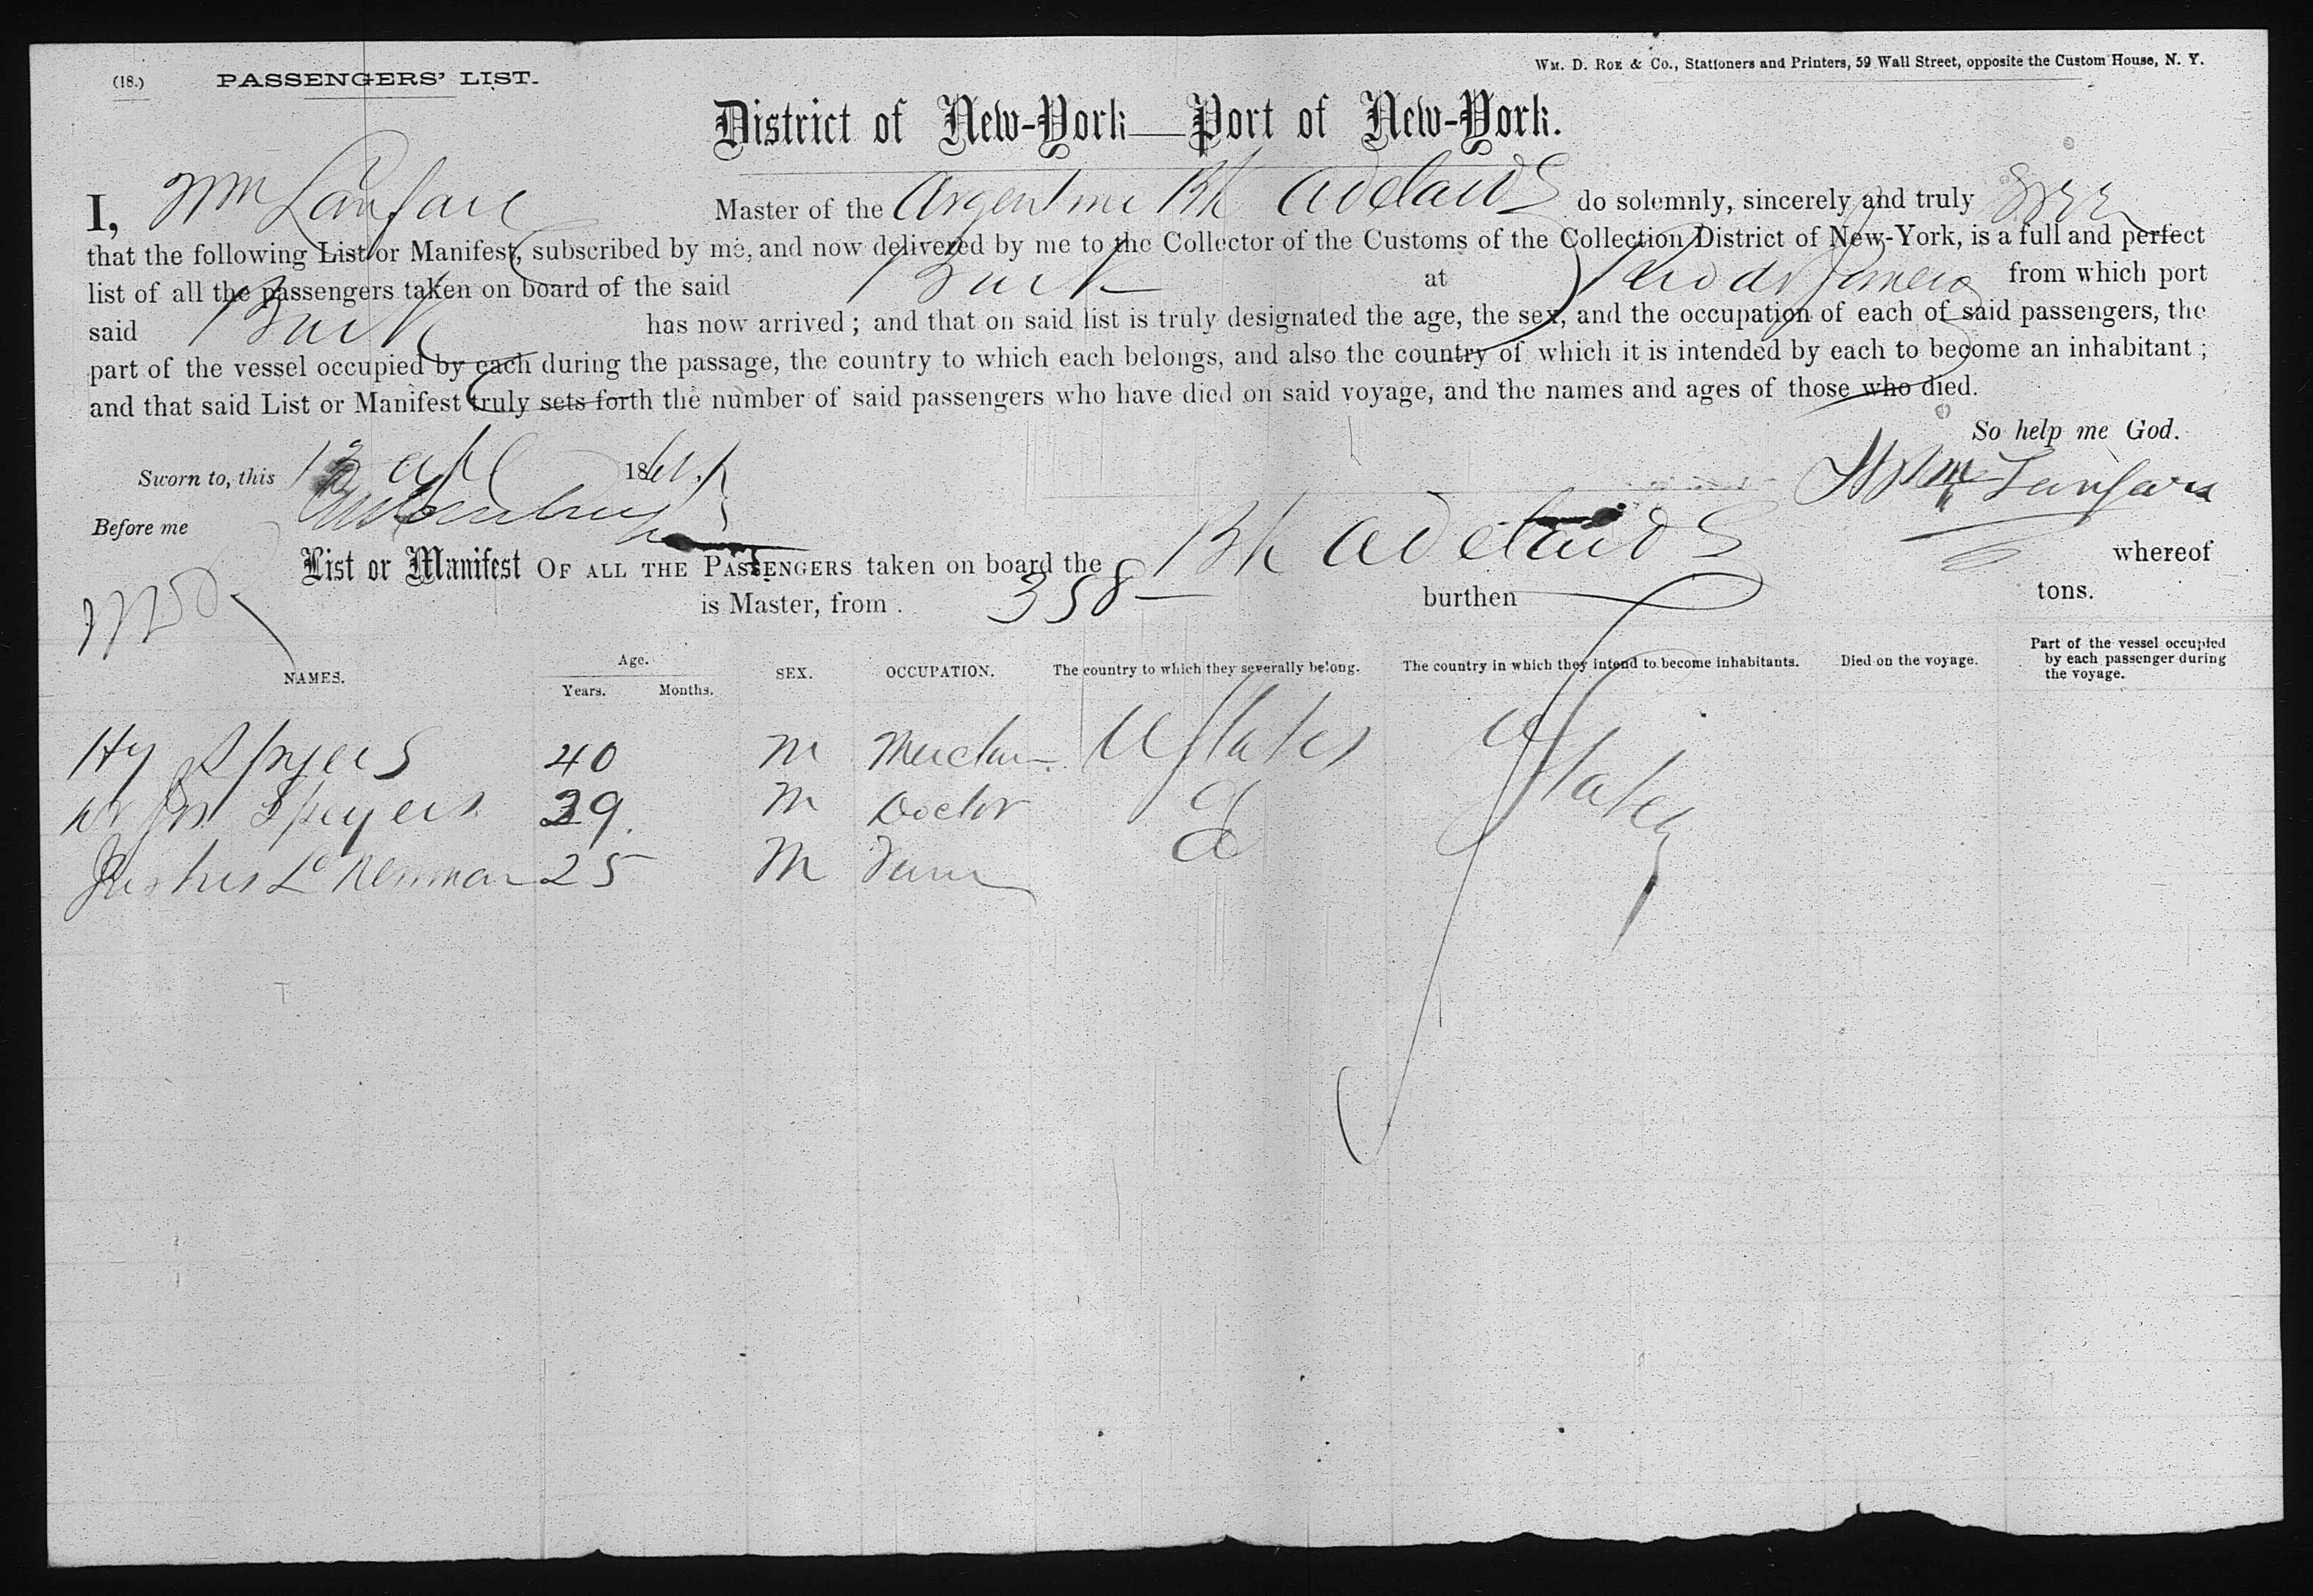 (18.) PASSENGERS' LIST.
WM. D. ROE & Co., Stationers and Printers, 59 Wall Street, opposite the Custom House, N. Y.
District of New-York—Port of New-York.
I, Wm Lanfare Master of the Argentine Bk Adelaide do solemnly, sincerely and truly
that the following List or Manifest, subscribed by me, and now delivered by me to the Collector of the Customs of the Collection District of New-York, is a full and perfect
list of all the passengers taken on board of the said Bark at Rio de Janeiro from which port
said Bark has now arrived; and that on said list is truly designated the age, the sex, and the occupation of each of said passengers, the
part of the vessel occupied by each during the passage, the country to which each belongs, and also the country of which it is intended by each to become an inhabitant;
and that said List or Manifest truly sets forth the number of said passengers who have died on said voyage, and the names and ages of those who died.
So help me God.
Sworn to, this 13 Apl 186
Wm Lanfare
Before me
List or Manifest OF ALL THE PASSENGERS taken on board the Bk Adelaide whereof
is Master, from 358 burthen tons.
NAMES. Age. Years. Months. SEX. OCCUPATION. The country to which they severally belong. The country in which they intend to become inhabitants. Died on the voyage. Part of the vessel occupied by each passenger during the voyage.
Hy Spyers 40 M Mercha UStates UStates
Speyers 39 M Doctor d
Justus L 25 M Farm d